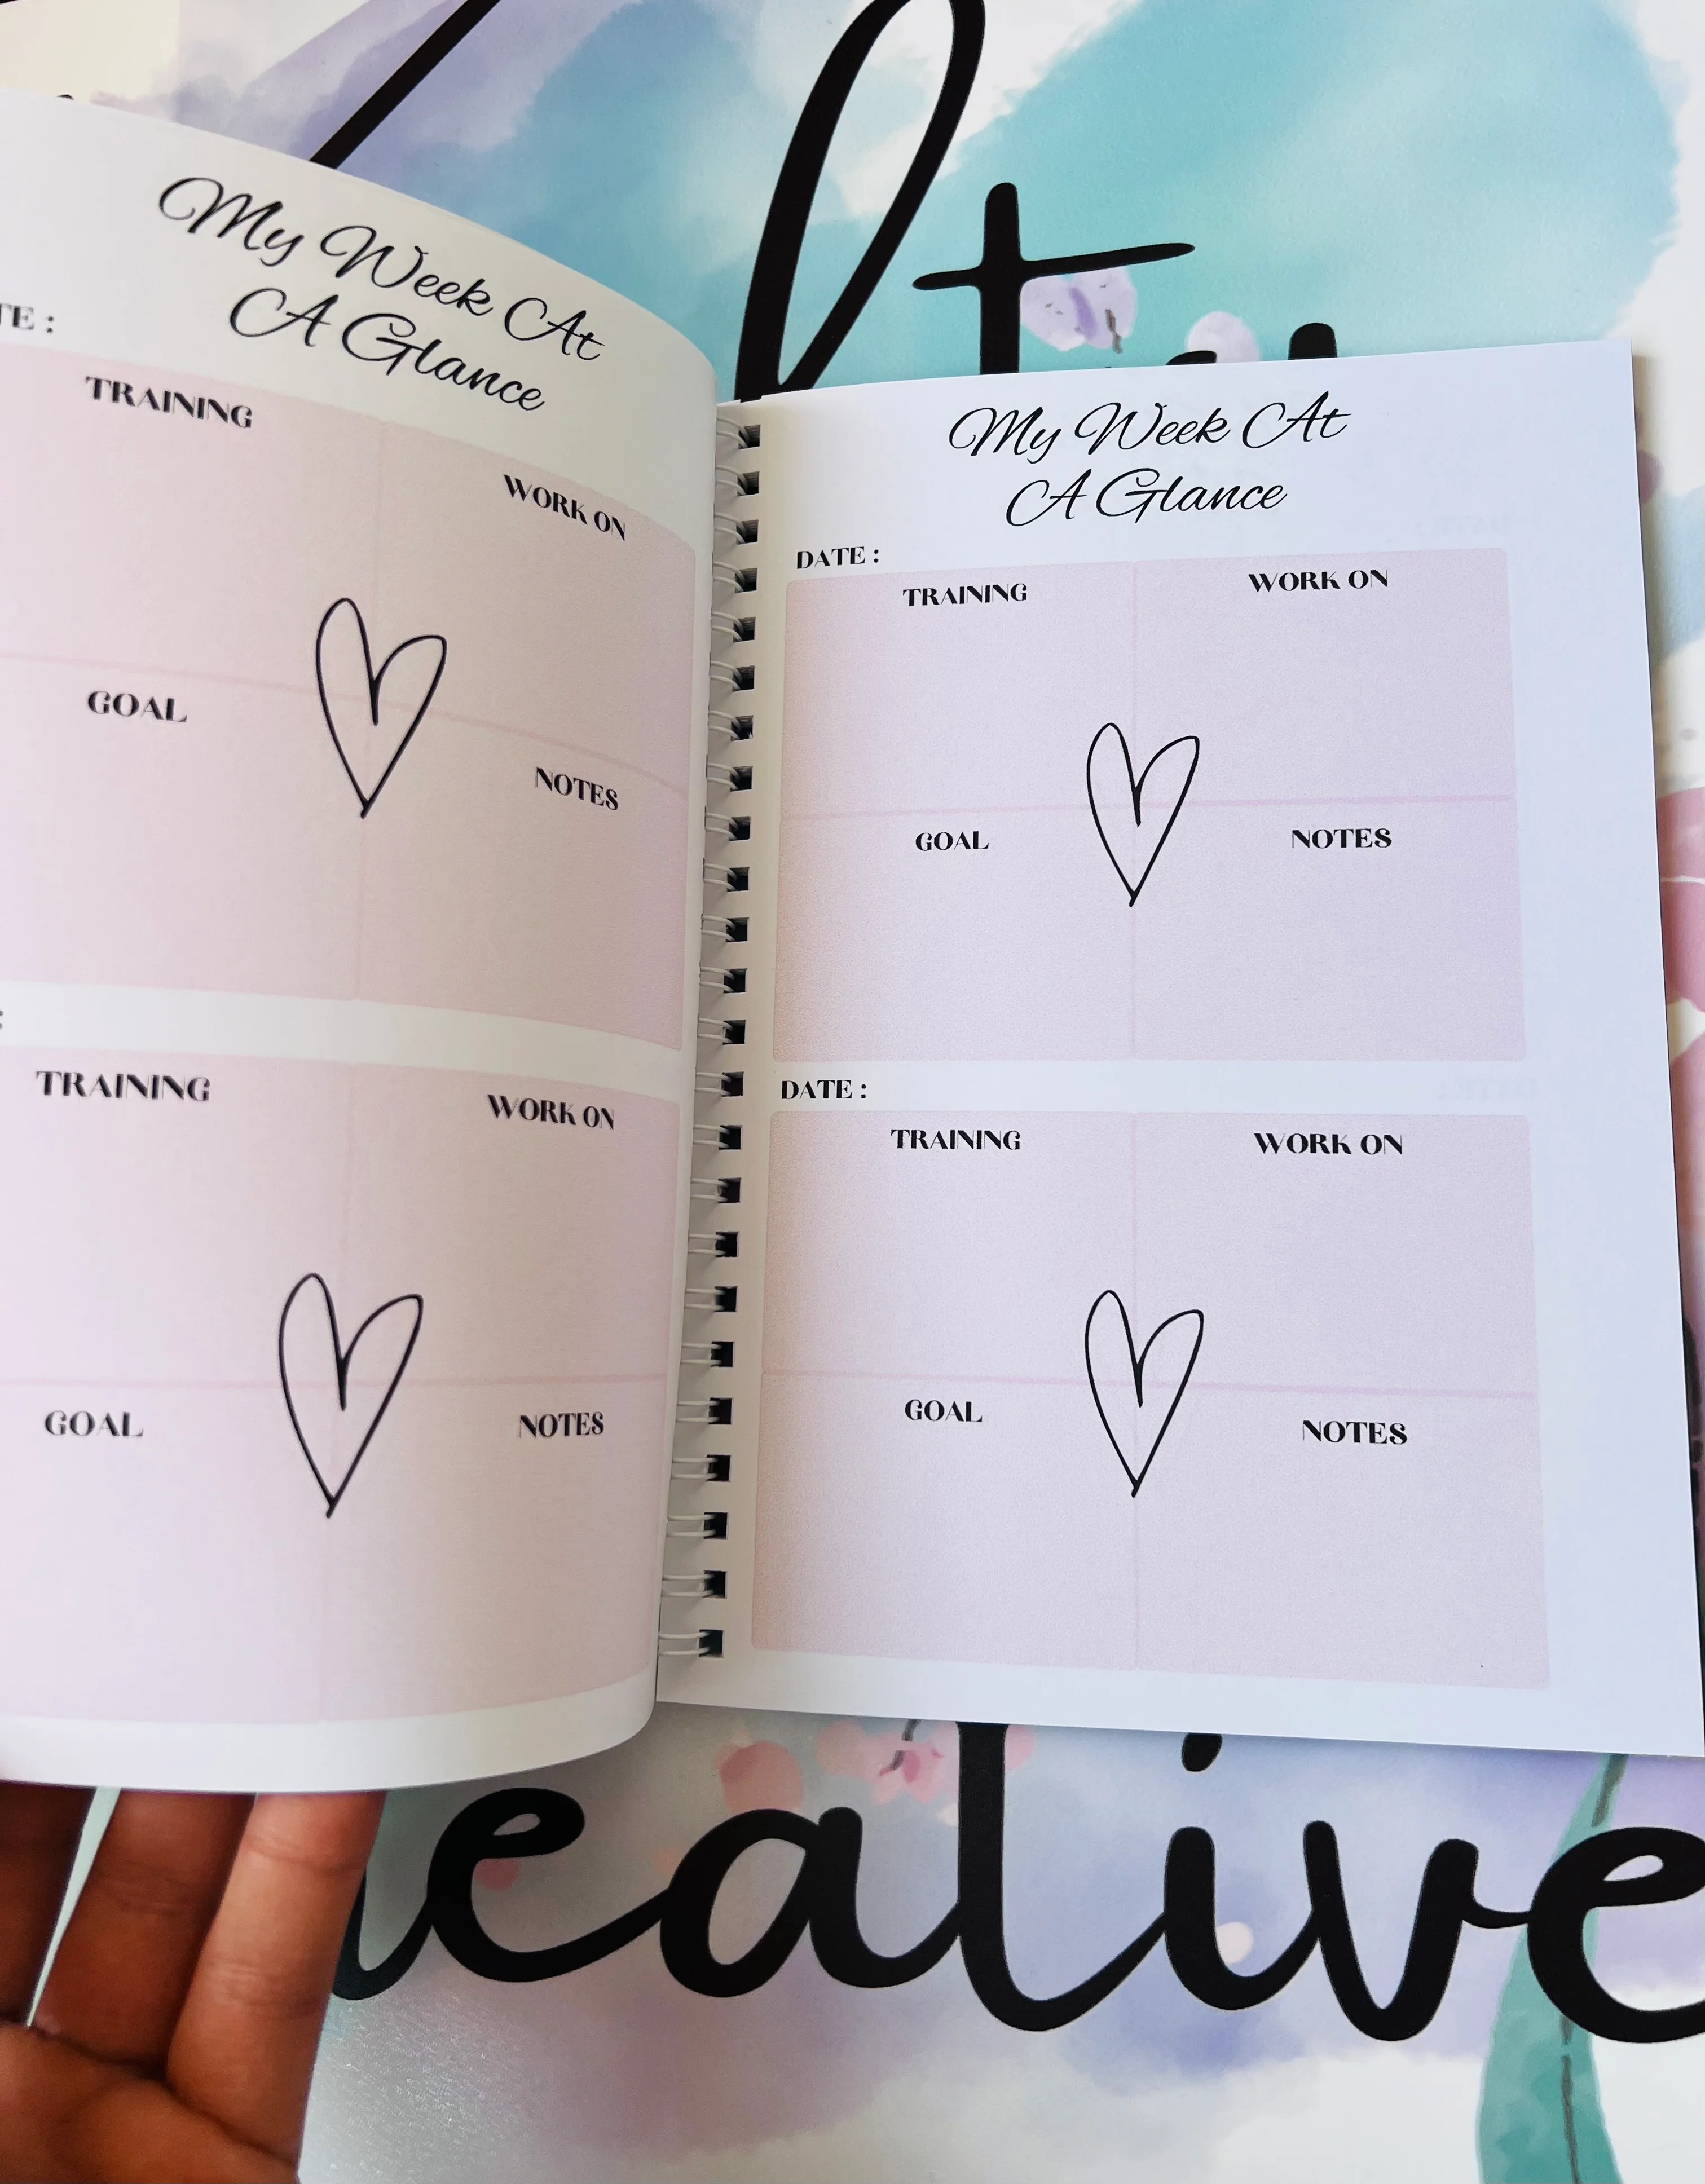 My Week At
A Glance
TRAINING
WORK ON
GOAL
NOTES
TRAINING
WORK ON
GOAL
NOTES
My Week At
A Glance
DATE :
TRAINING
WORK ON
GOAL
NOTES
DATE :
TRAINING
WORK ON
GOAL
NOTES